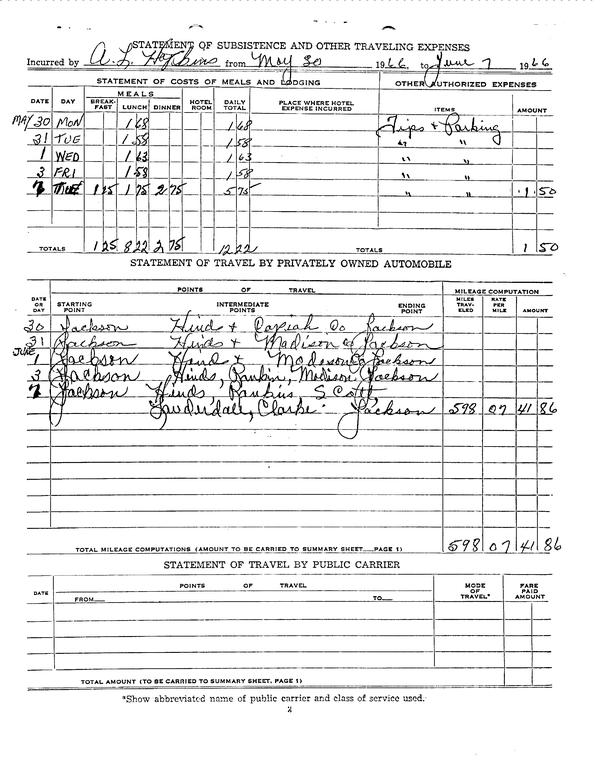 STATEMENT OF SUBSISTENCE AND OTHER TRAVELING EXPENSES
Incurred by A. L. Hopkins from May 30 1966, to June 7 1966
STATEMENT OF COSTS OF MEALS AND LODGING OTHER AUTHORIZED EXPENSES
DATE DAY MEALS BREAK-FAST LUNCH DINNER HOTEL ROOM DAILY TOTAL PLACE WHERE HOTEL EXPENSE INCURRED ITEMS AMOUNT
MAY 30 MON 1 68 1 68 Tips & Parking
31 TUE 1 58 1 58 " "
1 WED 1 63 1 63 " "
3 FRI 1 58 1 58 " "
7 TUE 1 25 1 75 2 75 5 75 " " 1 50
TOTALS 1 25 8 22 2 75 12 22 TOTALS 1 50
STATEMENT OF TRAVEL BY PRIVATELY OWNED AUTOMOBILE
POINTS OF TRAVEL MILEAGE COMPUTATION
DATE OR DAY STARTING POINT INTERMEDIATE POINTS ENDING POINT MILES TRAV-ELED RATE PER MILE AMOUNT
30 Jackson Hinds & Copiah Co Jackson
31 Jackson Hinds & Madison Co Jackson
JUNE 1 Jackson Hinds & Madison Co Jackson
3 Jackson Hinds, Rankin, Madison, Jackson
7 Jackson Hinds Rankin, Scott,
Lauderdale, Clarke Jackson 598 07 41 86
TOTAL MILEAGE COMPUTATIONS (AMOUNT TO BE CARRIED TO SUMMARY SHEET PAGE 1) 598 07 41 86
STATEMENT OF TRAVEL BY PUBLIC CARRIER
DATE POINTS OF TRAVEL MODE OF TRAVEL* FARE PAID AMOUNT
FROM TO
TOTAL AMOUNT (TO BE CARRIED TO SUMMARY SHEET, PAGE 1)
*Show abbreviated name of public carrier and class of service used.
2